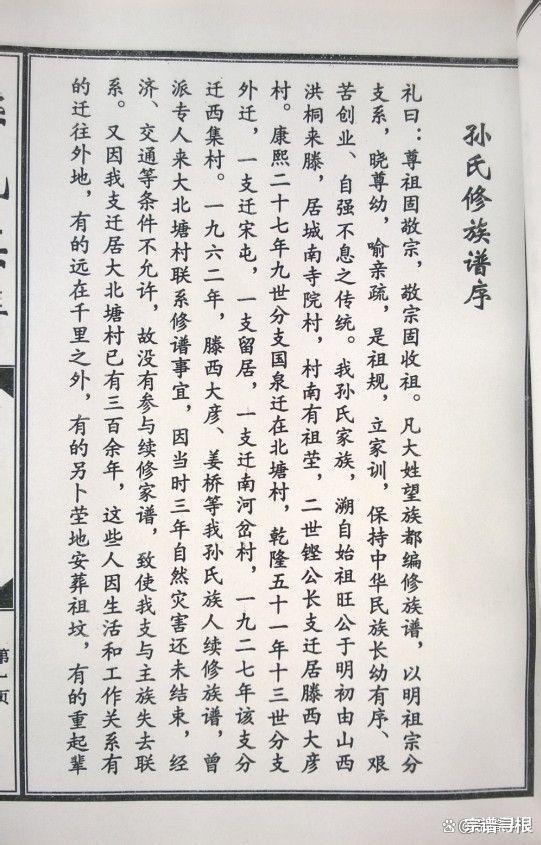 孙氏修族谱序
礼曰：尊祖固敬宗，敬宗固收祖。凡大姓望族都编修族谱，以明祖宗分
支系，晓尊幼，喻亲疏，是祖规，立家训，保持中华民族长幼有序、艰
苦创业、自强不息之传统。我孙氏家族，溯自始祖旺公于明初由山西
洪桐来滕，居城南寺院村，村南有祖茔，二世铿公长支迁居滕西大彦
村。康熙二十七年九世分支国泉迁在北塘村，乾隆五十一年十三世分支
外迁，一支迁宋屯，一支留居，一支迁南河岔村，一九二七年该支分
迁西集村。一九六二年，滕西大彦、姜桥等我孙氏族人续修族谱，曾
派专人来大北塘村联系修谱事宜，因当时三年自然灾害还未结束，经
济、交通等条件不允许，故没有参与续修家谱，致使我支与主族失去联
系。又因我支迁居大北塘村已有三百余年，这些人因生活和工作关系有
的迁往外地，有的远在千里之外，有的另卜茔地安葬祖坟，有的重起辈
第一页
宗谱寻根